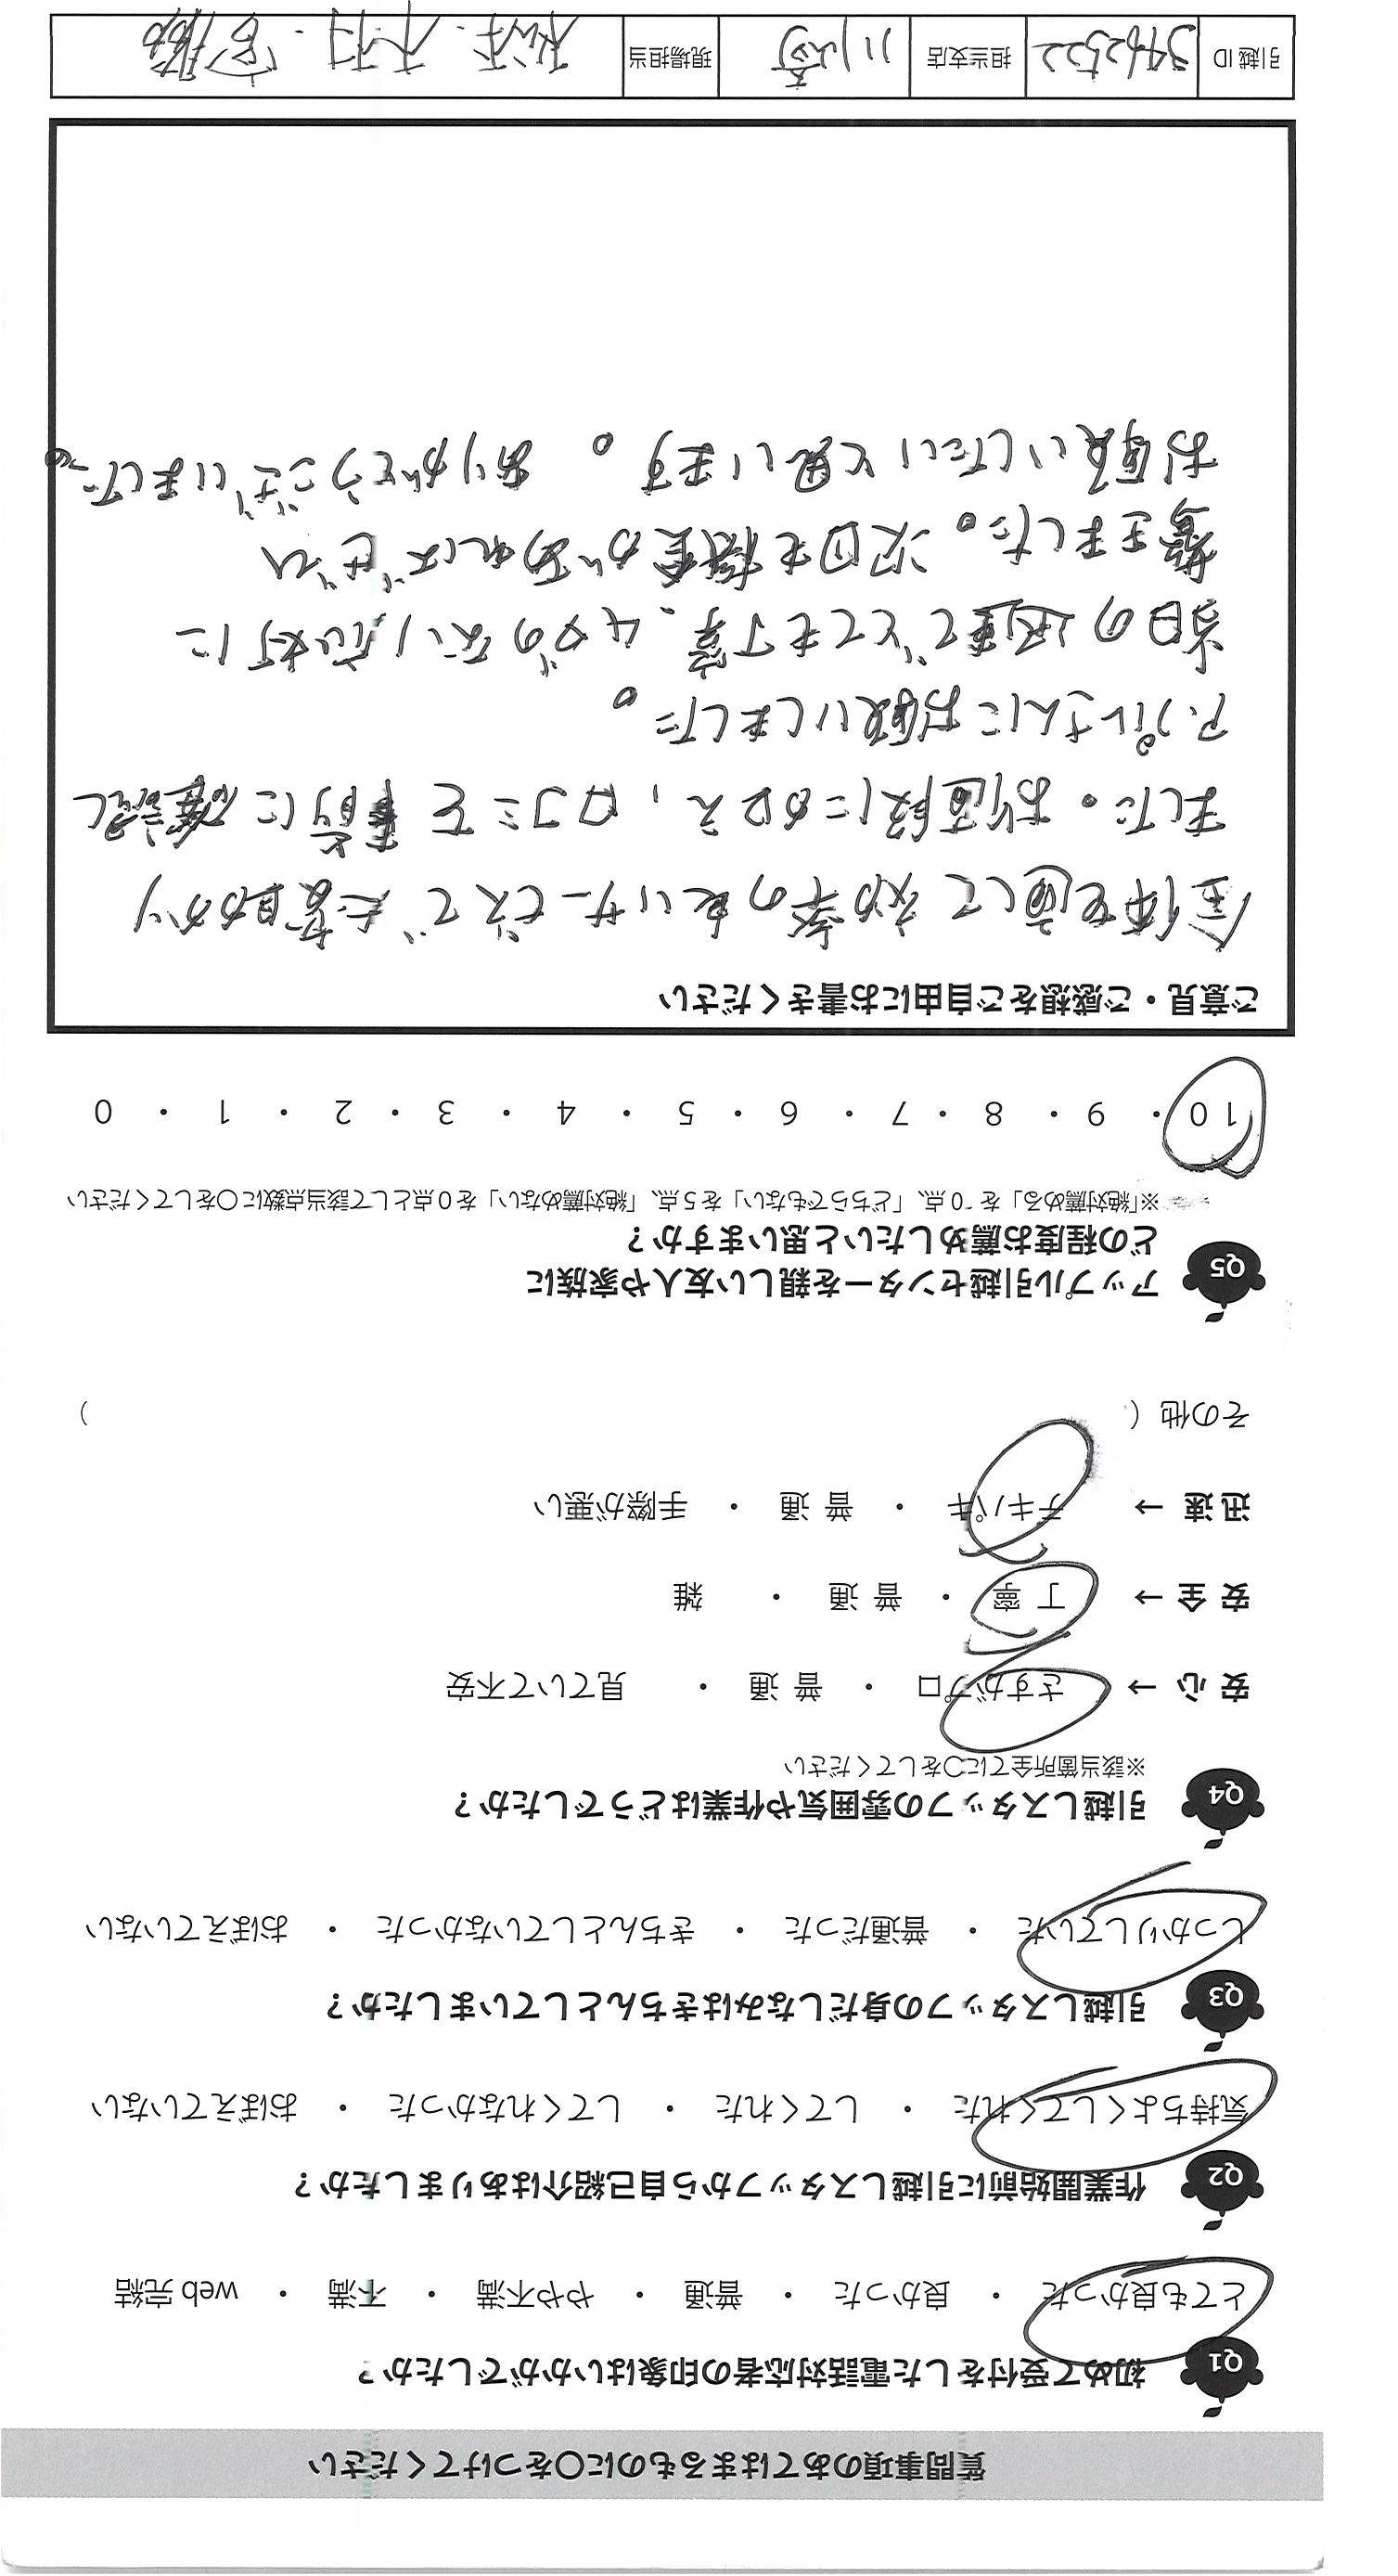 質問事項のあてはまるものに〇をつけてください
Q1 初めて受付をした電話対応者の印象はいかがでしたか？
とても良かった ・ 良かった ・ 普通 ・ やや不満 ・ 不満 ・ web 完結
Q2 作業開始前に引越しスタッフから自己紹介はありましたか？
気持ちよくしてくれた ・ してくれた ・ してくれなかった ・ おぼえていない
Q3 引越しスタッフの身だしなみはきちんとしていましたか？
しっかりしていた ・ 普通だった ・ きちんとしていなかった ・ おぼえていない
Q4 引越しスタッフの雰囲気や作業はどうでしたか？
※該当箇所全てに〇をしてください
安 心 → さすがプロ ・ 普 通 ・ 見ていて不安
安 全 → 丁 寧 ・ 普 通 ・ 雑
迅 速 → テキパキ ・ 普 通 ・ 手際が悪い
その他（ ）
Q5 アップル引越センターを親しい友人や家族に
どの程度お薦めしたいと思いますか？
※「絶対薦める」を10点、「どちらでもない」を5点、「絶対薦めない」を0点として該当点数に〇をしてください
10 ・ 9 ・ 8 ・ 7 ・ 6 ・ 5 ・ 4 ・ 3 ・ 2 ・ 1 ・ 0
ご意見・ご感想をご自由にお書きください
全体を通して効率の良いサービスで大変助かり
ました。お値段に加え、口コミを事前に確認し
アップルさんにお願いしました。
当日の運搬までとても丁寧、ムダのない応対に
驚きました。次回も機会があればぜひ
お願いしたいと思います。ありがとうございました。
引越ID 3462522 担当支店 川崎 現場担当 松沢・木村・宮勝